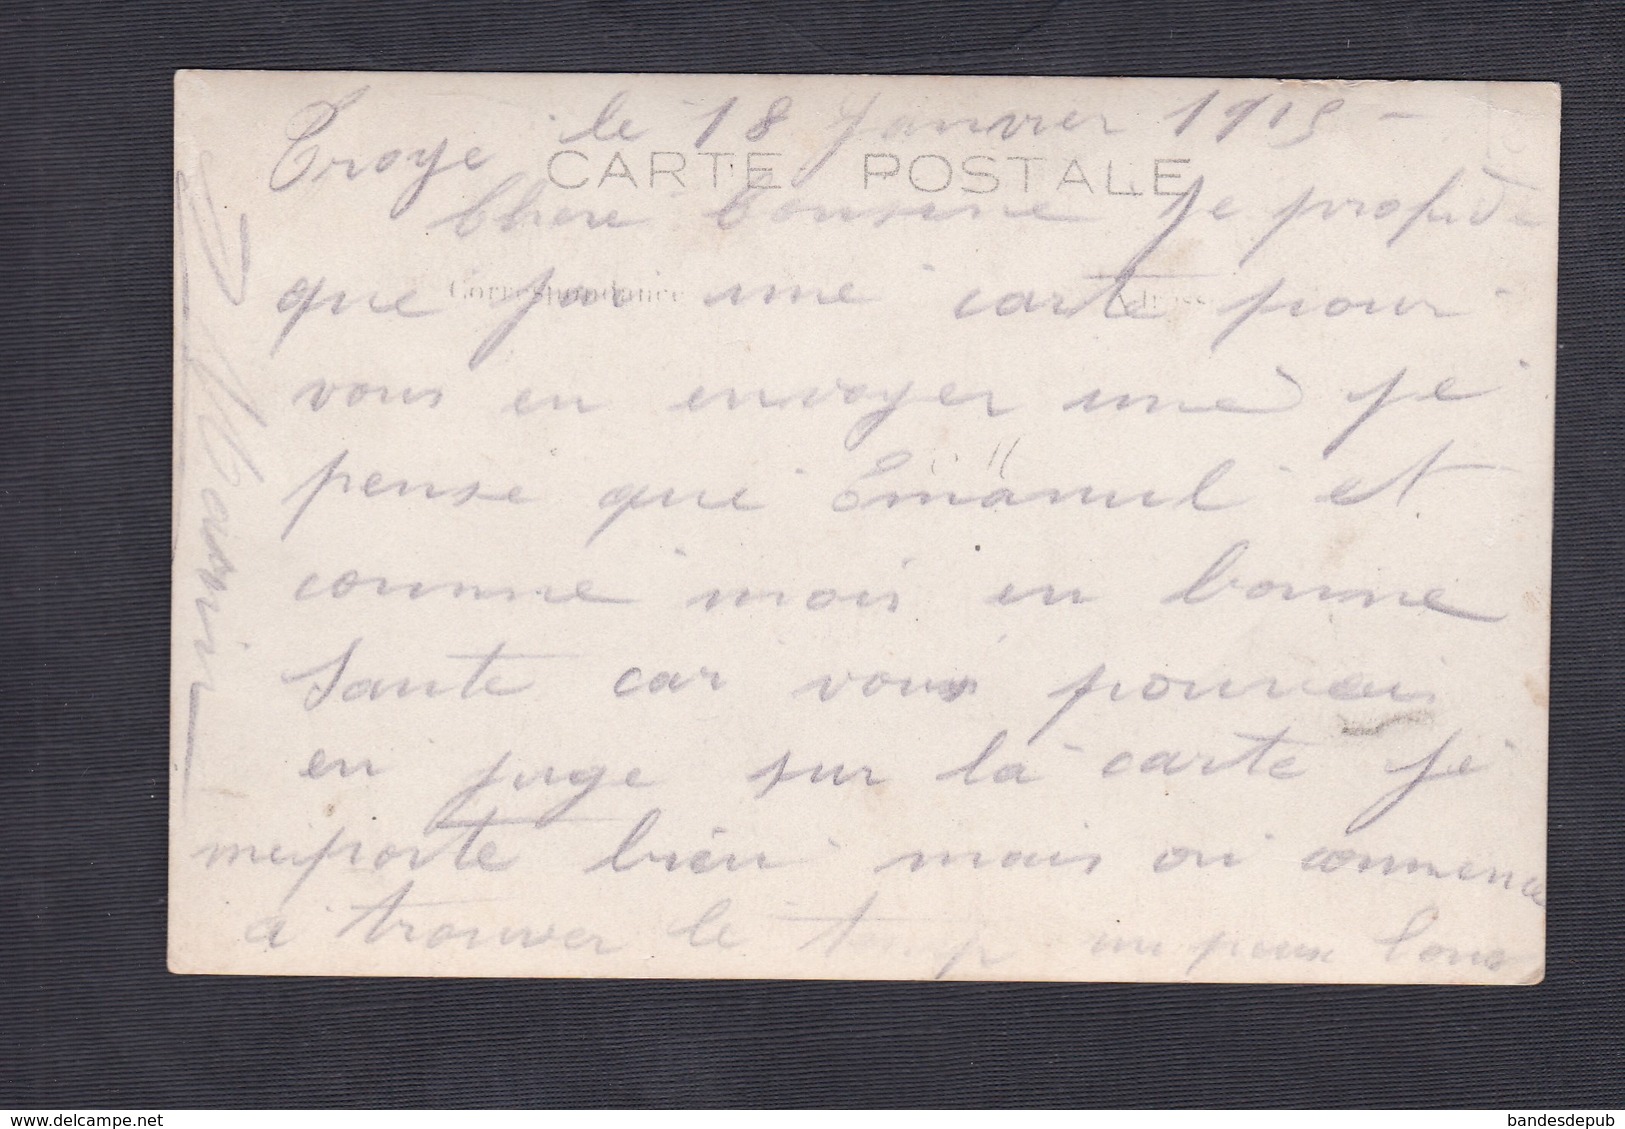 Troye le 18 Janvier 1915
CARTE POSTALE
Chere Cousine je profite
Correspondance Adresse
que jai une carte pour
vous en envoyer une je
pense que Emanuel et
comme moi en bonne
Sante car vous pourrai
en juge sur la carte je
me porte bien mais on commence
a trouver le temp un peux
Marin
delcampe.net
bandesdepub